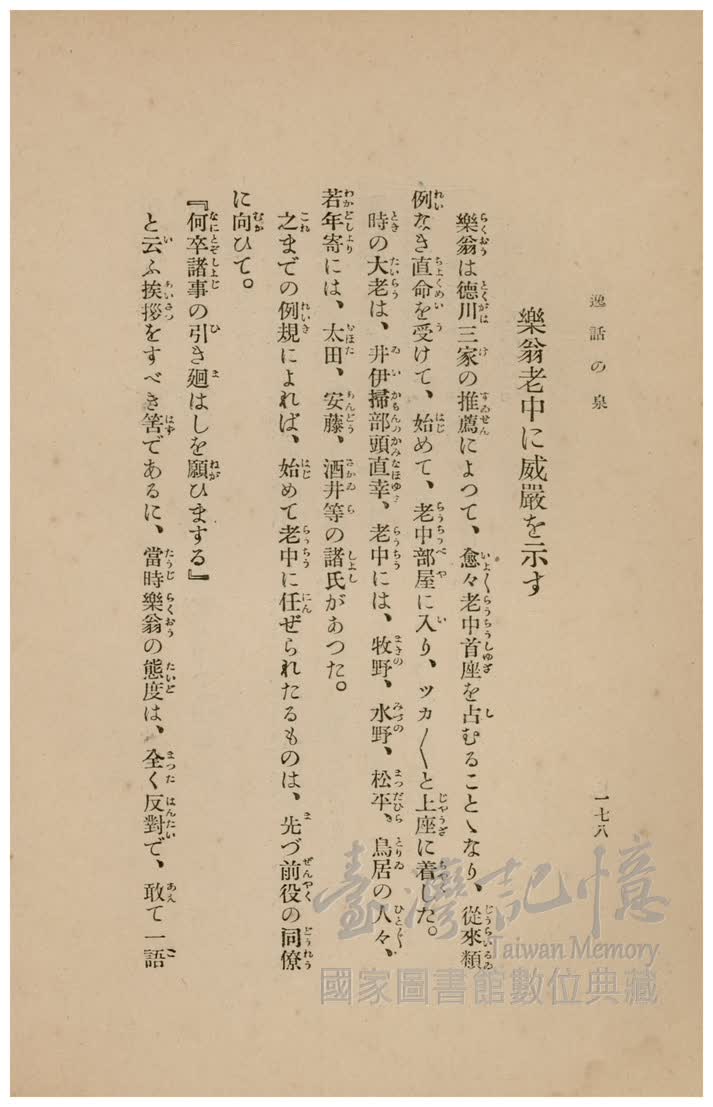 逸話の泉
一七八
樂翁老中に威嚴を示す
樂翁は德川三家の推薦によつて、愈々老中首座を占むることゝなり、從來類
例なき直命を受けて、始めて、老中部屋に入り、ツカ〳〵と上座に着した。
時の大老は、井伊掃部頭直幸、老中には、牧野、水野、松平、鳥居の人々、
若年寄には、太田、安藤、酒井等の諸氏があつた。
之までの例規によれば、始めて老中に任ぜられたるものは、先づ前役の同僚
に向ひて。
『何卒諸事の引き廻はしを願ひまする』
と云ふ挨拶をすべき筈であるに、當時樂翁の態度は、全く反對で、敢て一語
臺灣記憶
Taiwan Memory
國家圖書館數位典藏